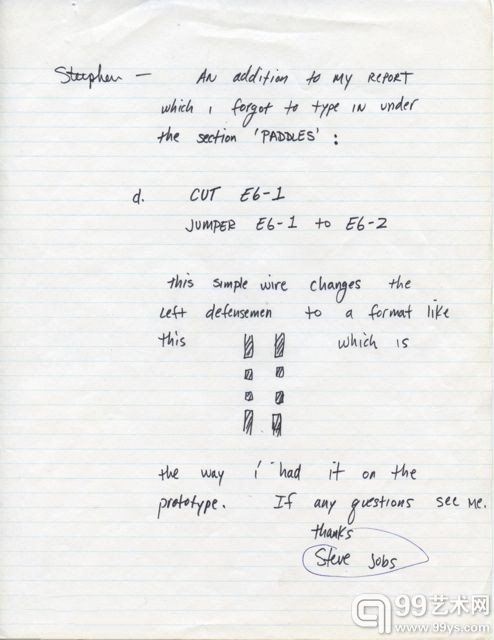 Stephen — AN addition to my REPORT
which i forgot to type in under
the section 'PADDLES' :
d. CUT E6-1
JUMPER E6-1 to E6-2
this simple wire changes the
left defensemen to a format like
this which is
the way i had it on the
prototype. If any questions see me.
thanks
Steve Jobs
99艺术网
www.99ys.com